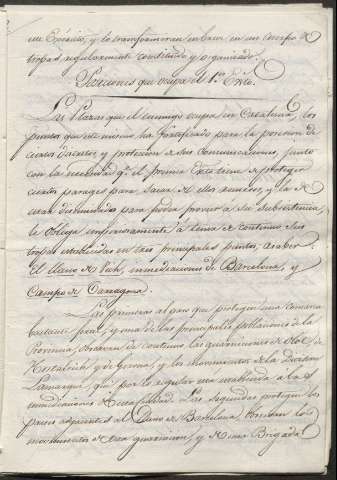 un Exército, y lo transformaron luego en un cuerpo de
tropas regularmente constituido y organizado.
Posiciones que ocupa el 1.er Exto.
Las Plazas que el enemigo ocupa en Cataluña, los
puntos que este mismo ha fortificado para la posesion de
ciertos Puertos y proteccion de sus comunicaciones, junto
con la necesidad q.e el primer Exto. tiene de proteger
ciertos parages para sacar de ellos recursos, y la de
estar diseminado para poder proveer á su subsistencia,
le obliga imperiosamente á tener de continuo sus
tropas establecidas en tres principales puntos, á saber:
El llano de Vich, inmediaciones de Barcelona, y
Campo de Tarragona.
Las primeras al paso que protegen una comarca
bastante feraz, y una de las principales poblaciones de la
Provincia, observan de continuo las guarniciones de Olot, de
Hostalrich y de Gerona, y los movimientos de la Division
Lamarque, que por lo regular está establecida á las
inmediaciones de esta Ciudad. Las segundas protegen los
paises adyacentes al Llano de Barcelona, observan los
movimientos de esta guarnicion, y de una Brigada